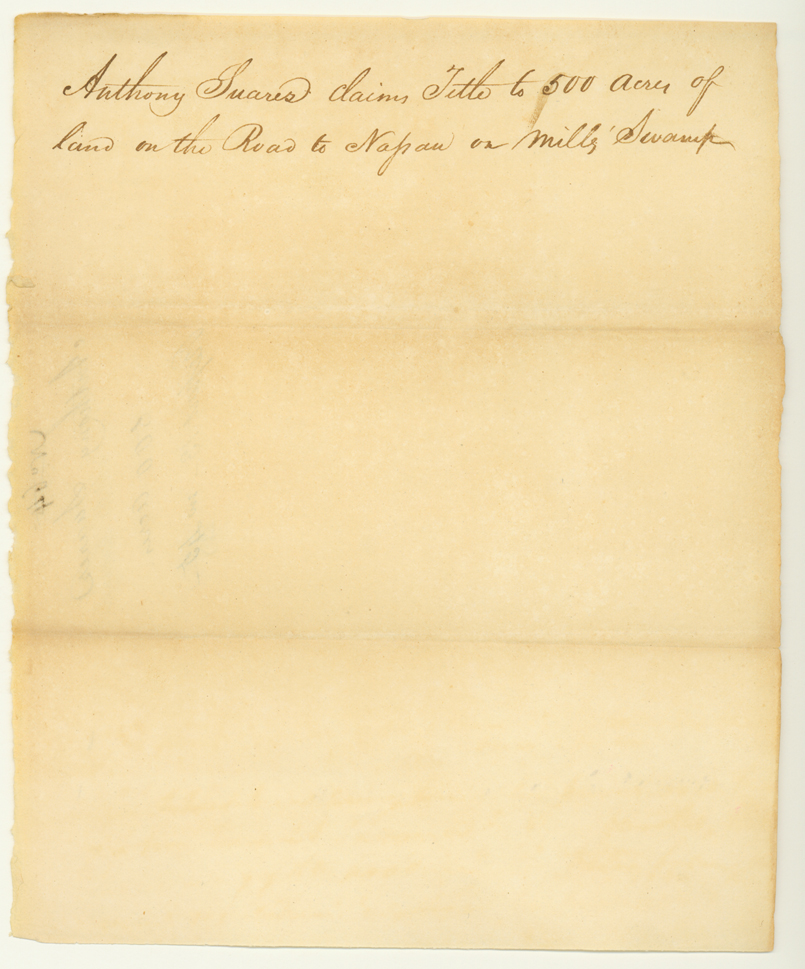 Anthony Suarez claims Title to 500 acres of
land on the Road to Nassau on Mills' Swamp